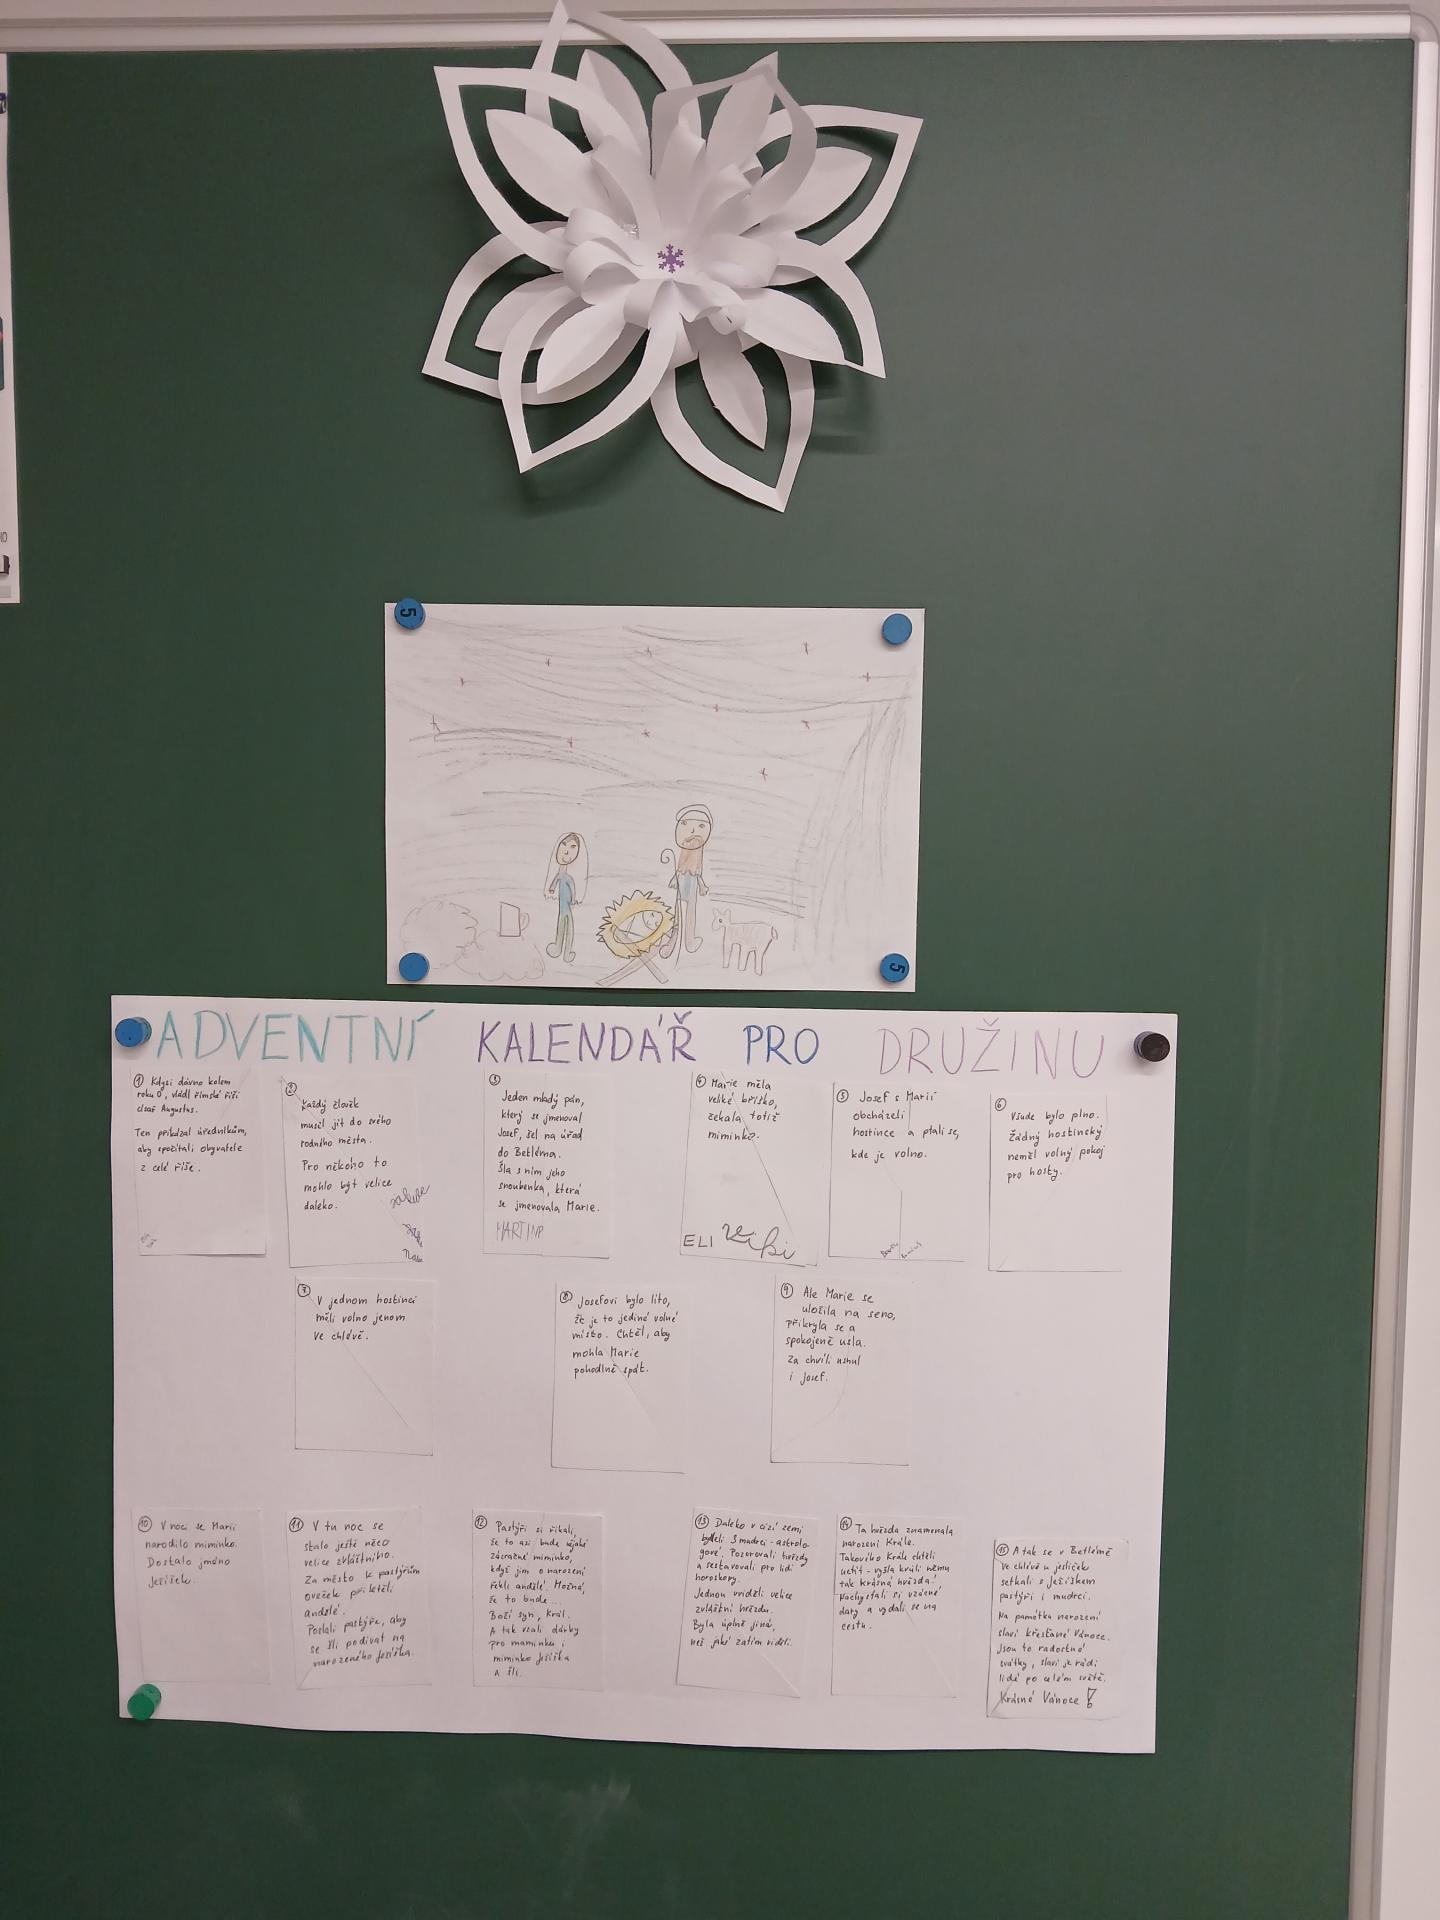 5
5
ADVENTNÍ KALENDÁŘ PRO DRUŽINU
1 Kdysi dávno kolem
roku 0, vládl římské říši
císař Augustus.
Ten přikázal úředníkům,
aby spočítali obyvatele
z celé říše.
2
Každý člověk
musil jít do svého
rodného města.
Pro někoho to
mohlo být velice
daleko.
3
Jeden mladý pán,
který se jmenoval
Josef, šel na úřad
do Betléma.
Šla s ním jeho
snoubenka, která
se jmenovala Marie.
MARTINA
4 Marie měla
veliké bříško,
čekala totiž
miminko.
ELI
5 Josef s Marií
obcházeli
hostince a ptali se,
kde je volno.
6
Všude bylo plno.
Žádný hostinský
neměl volný pokoj
pro hosty.
7
V jednom hostinci
měli volno jenom
ve chlévě.
8 Josefovi bylo líto,
že je to jediné volné
místo. Chtěl, aby
mohla Marie
pohodlně spát.
9 Ale Marie se
uložila na seno,
přikryla se a
spokojeně usla.
Za chvíli usnul
i Josef.
10 V noci se Marii
narodilo miminko.
Dostalo jméno
Ježíšek.
11 V tu noc se
stalo ještě něco
velice zvláštního.
Za město k pastýřům
oveček přiletěli
andělé.
Poslali pastýře, aby
se šli podívat na
narozeného Ježíška.
12 Pastýři si říkali,
že to asi bude nějaké
zázračné miminko,
když jim o narození
řekli andělé. Možná,
že to bude...
Boží syn, král.
A tak vzali dárky
pro maminku i
miminko Ježíška
a šli.
13 Daleko v cizí zemi
bydleli 3 mudrci - astrolo-
gové. Pozorovali hvězdy
a sestavovali pro lidi
horoskopy.
Jednou uviděli velice
zvláštní hvězdu.
Byla úplně jiná,
než jaké zatím viděli.
14 Ta hvězda znamenala
narození Krále.
Takového Krále chtěli
uctít - vyšla kvůli němu
tak krásná hvězda!
Nachystali si vzácné
dary a vydali se na
cestu.
15 A tak se v Betlémě
ve chlévě u jesliček
setkali s Ježíškem
pastýři i mudrci.
Na památku narození
slaví křesťané Vánoce.
Jsou to radostné
svátky, slaví je rádi
lidé po celém světě.
Krásné Vánoce!